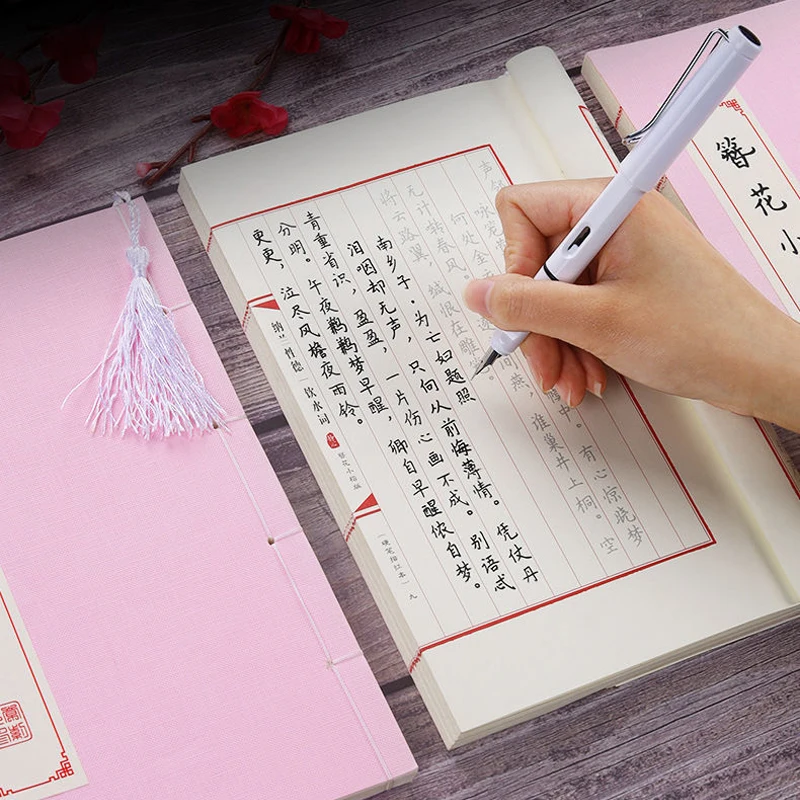 簪花小
有心惊晓梦
谁巢井上桐。空
将云路翼，城恨在雕
南乡子·为亡妇题照
泪咽却无声，只向从前悔薄情。凭仗丹
青重省识，盈盈，一片伤心画不成。别语忒
分明。午夜鹣鹣梦早醒，卿自早醒侬自梦。
更更，泣尽风檐夜雨铃。
纳兰性德 饮水词
簪花小楷版
（硬笔描红本） 九